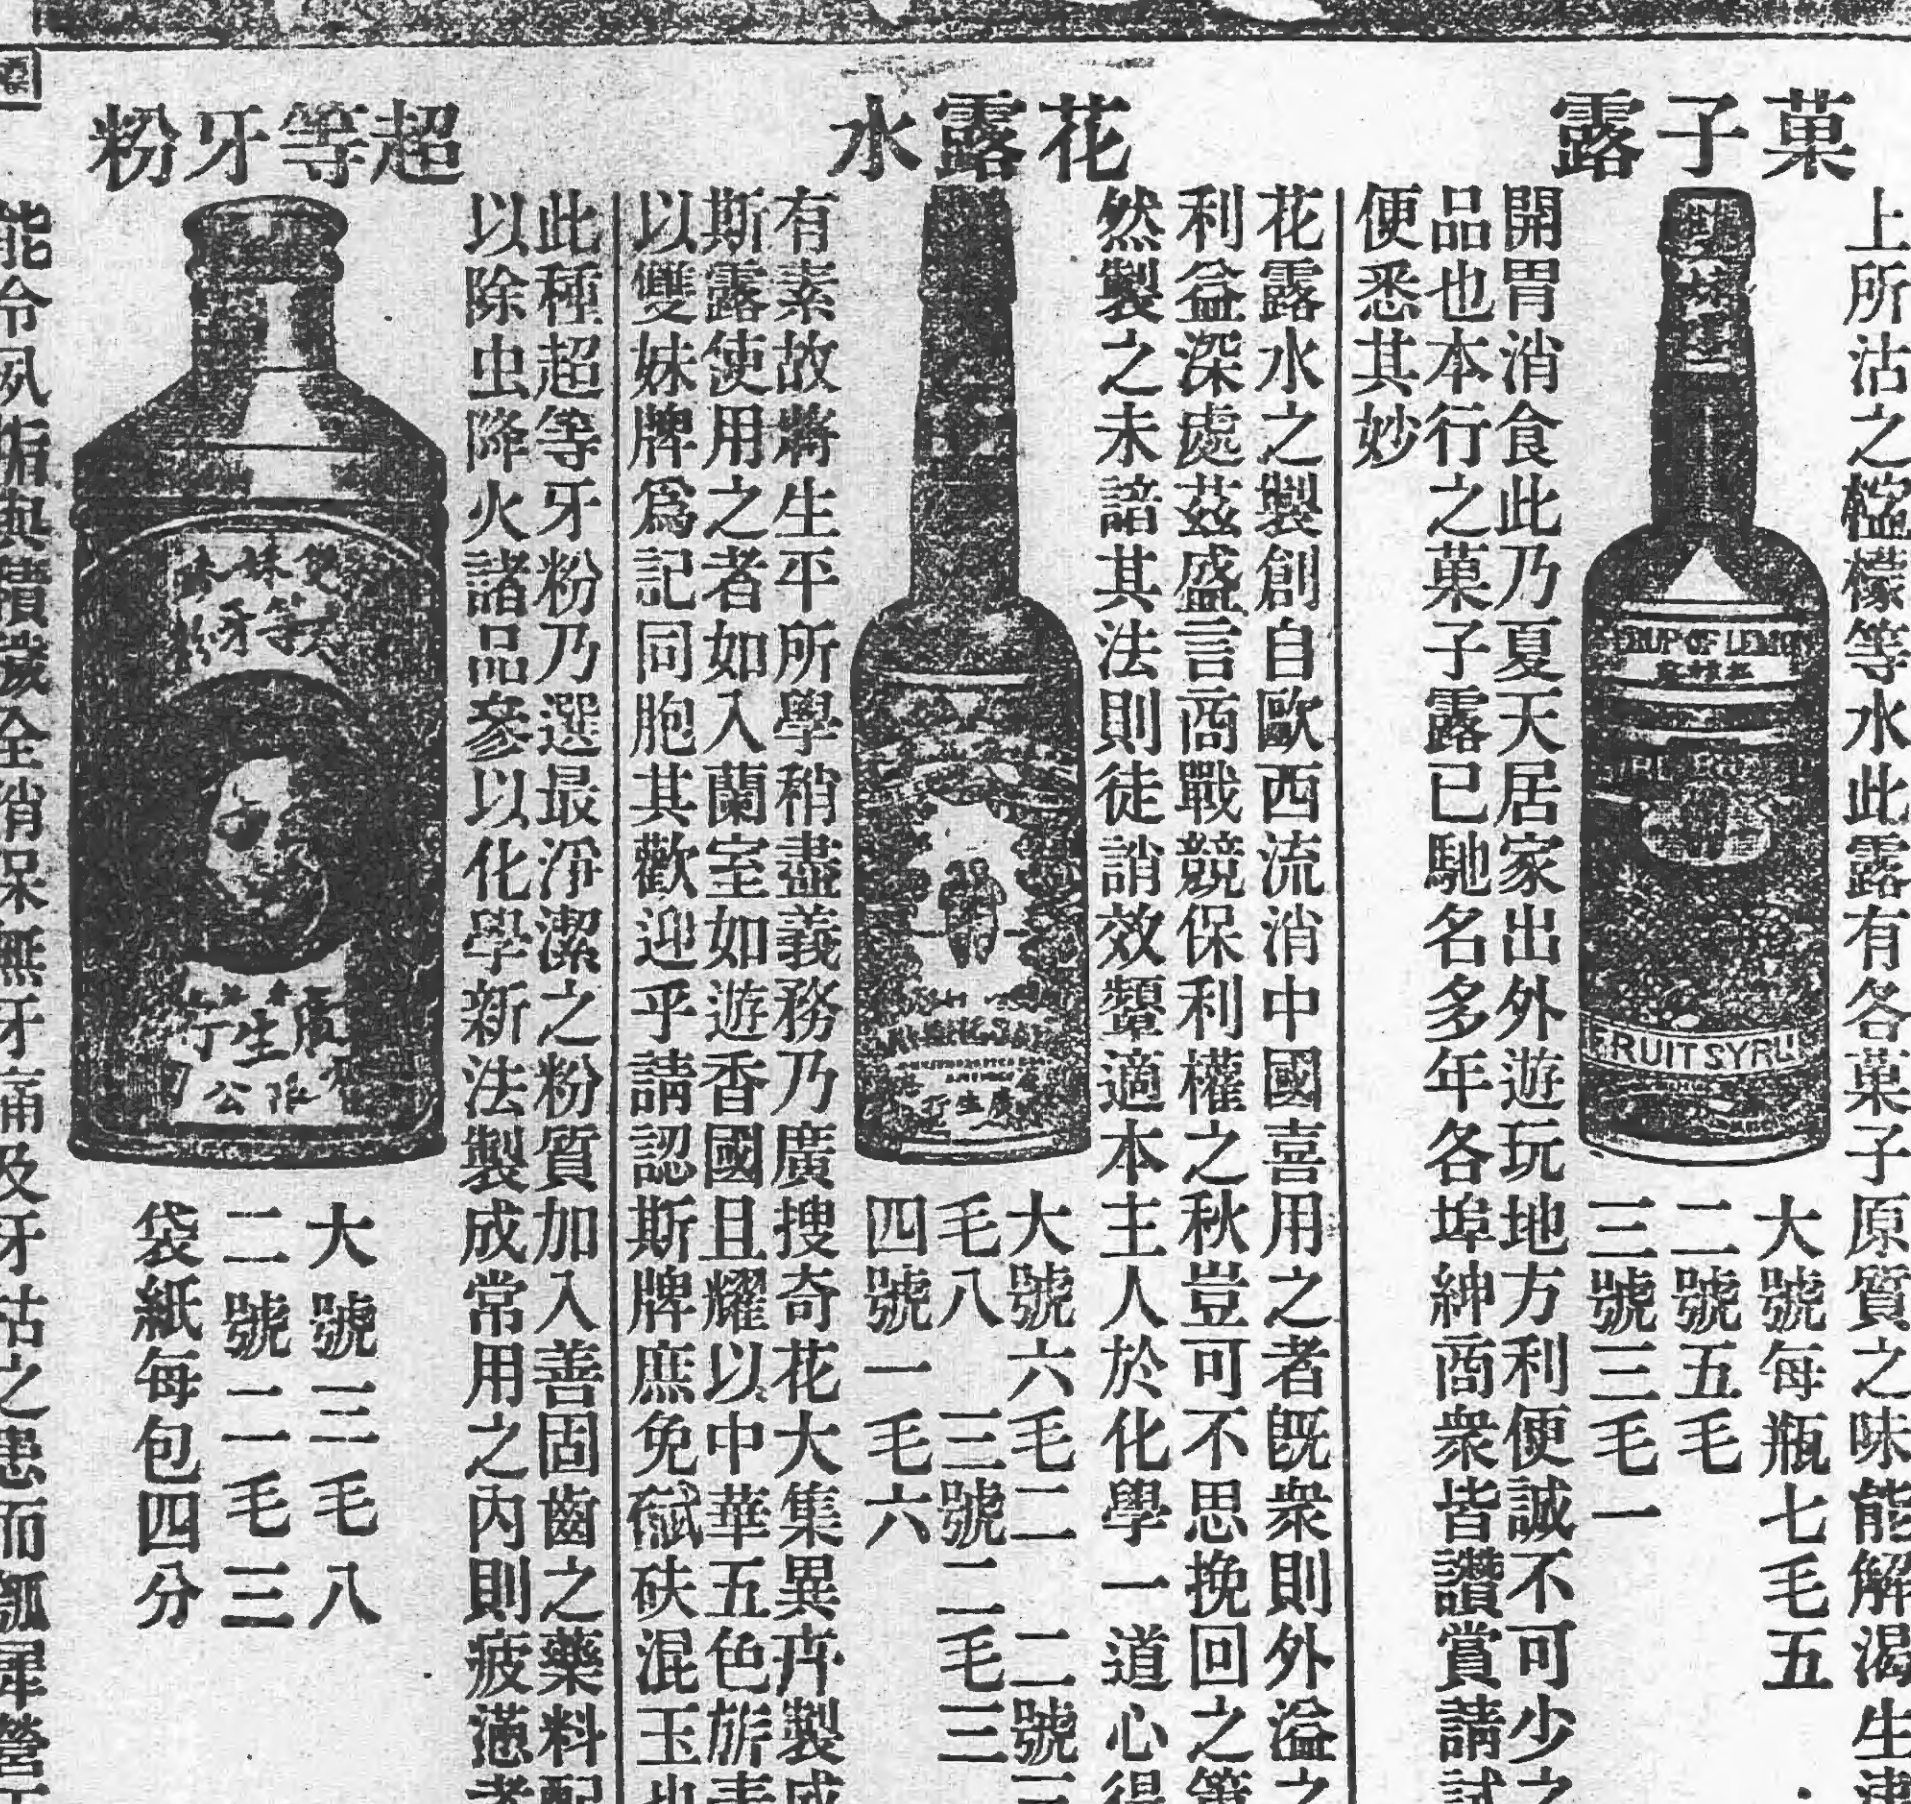 菓子露
上所沽之檸檬等水此露有各菓子原質之味能解渴生津
大號每瓶七毛五
二號五毛
三號三毛一
SYRUP OF LEMON
FRUIT SYRU
開胃消食此乃夏天居家出外遊玩地方利便誠不可少之
品也本行之菓子露已馳名多年各埠紳商衆皆讚賞請試
便悉其妙
花露水
花露水之製創自歐西流消中國喜用之者既衆則外溢之
利益深處茲盛言商戰競保利權之秋豈可不思挽回之策
然製之未諳其法則徒誚效顰適本主人於化學一道心得
大號六毛二 二號三
毛八 三號二毛三
四號一毛六
有素故將生平所學稍盡義務乃廣搜奇花大集異卉製成
斯露使用之者如入蘭室如遊香國且耀以中華五色旂表
以雙妹牌爲記同胞其歡迎乎請認斯牌庶免碔砆混玉也
超等牙粉
此種超等牙粉乃選最淨潔之粉質加入善固齒之藥料配
以除虫降火諸品參以化學新法製成常用之內則疲懣者
雙妹
等牙粉
廣生行
限公
大號三毛八
二號二毛三
袋紙每包四分
能令夙垢與積歲全消保無牙痛及牙枯之患而瓠犀瑩